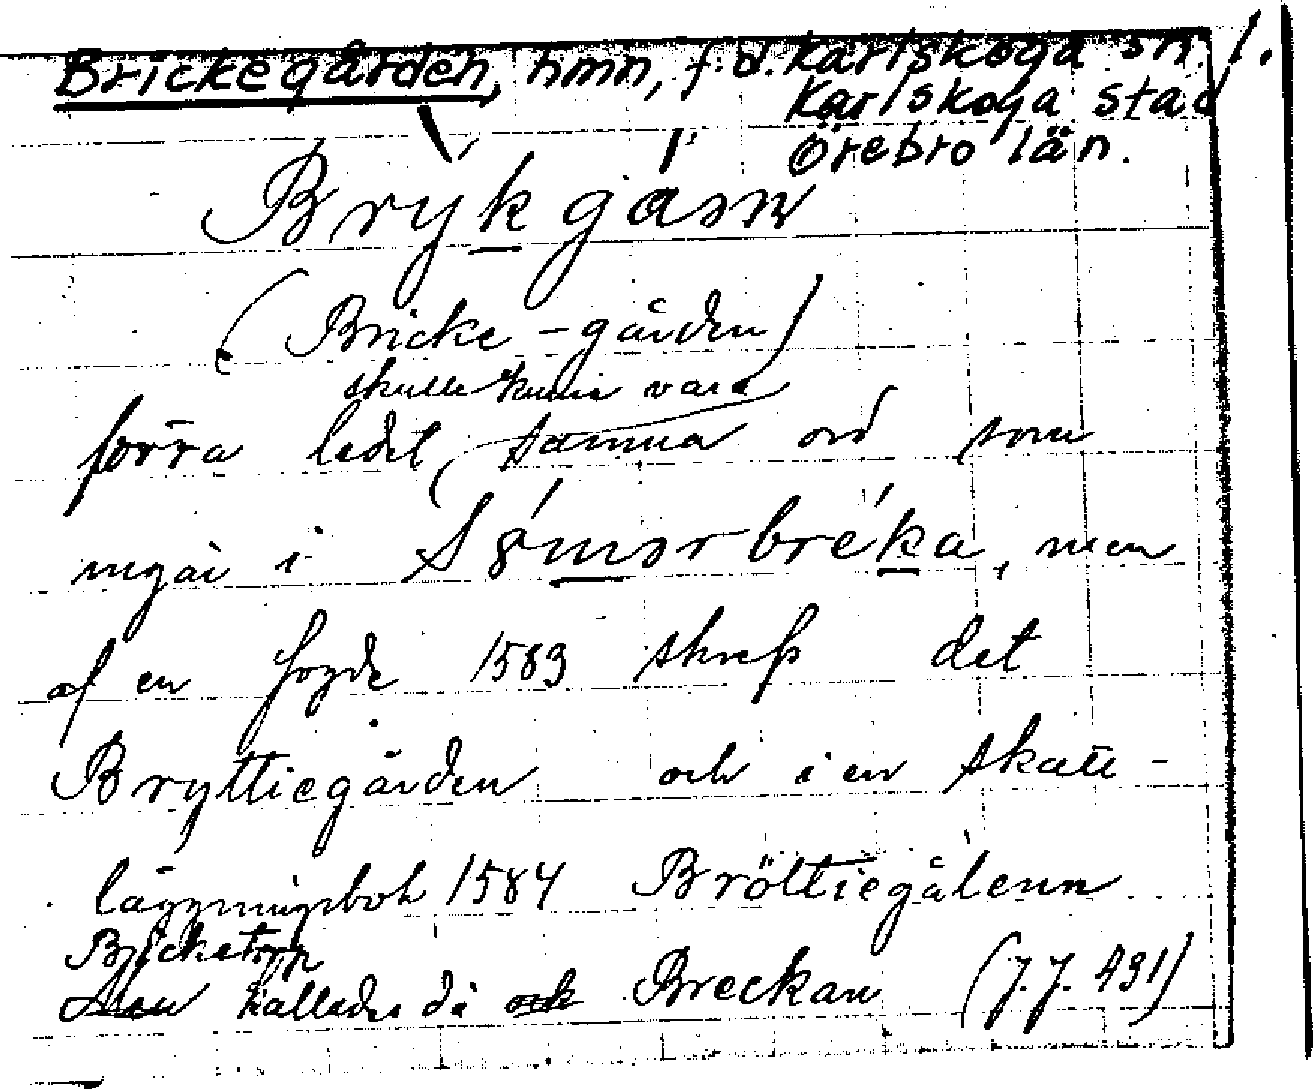 Brickegården, hmn, f.d. Karlskoga sn. 1.
Karlskoga stad
Örebro län.
Brykgásn
(Bricke-gården)
skulle kunna vara
förra ledet samma ord som
ingår i Sómorbréka, men
af en fogde 1583 skrefs det
Bryttiegården och i en skatt-
läggningsbok 1584 Bröttiegålenn
Bricketorp
Men kallades då och Breckan (J.J. 431)